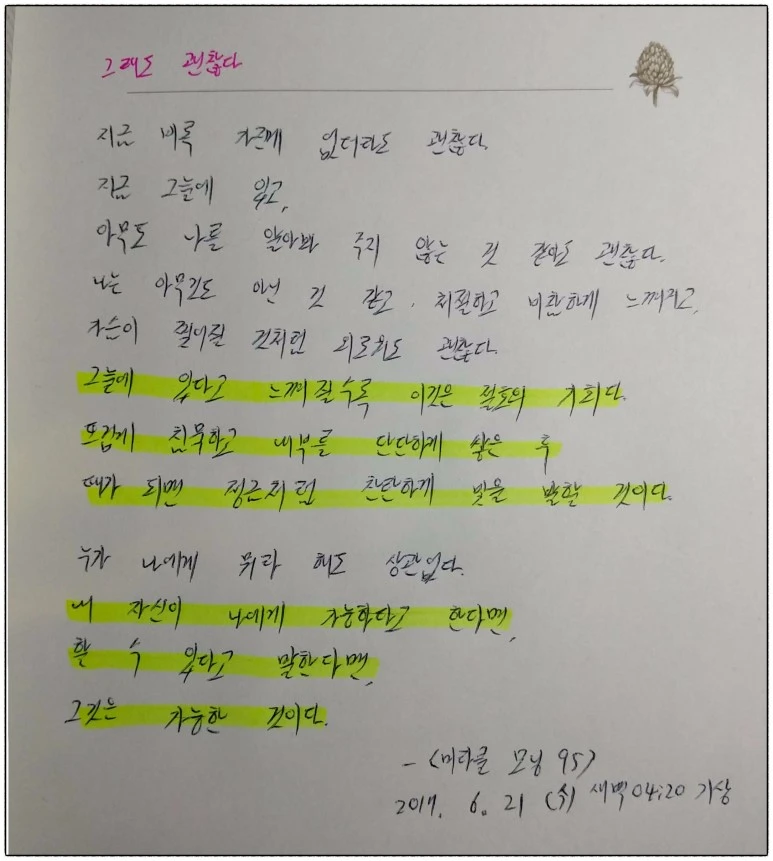 그래도 괜찮다
지금 비록 가진게 없더라도 괜찮다.
지금 그늘에 있고,
아무도 나를 알아봐 주지 않는 것 같아도 괜찮다.
나는 아무것도 아닌 것 같고, 처절하고 비참하게 느껴지고,
가슨이 찢어질 것처럼 외로워도 괜찮다.
그늘에 있다고 느껴질수록 이것은 절호의 기회다.
뜨겁게 침묵하고 내부를 단단하게 쌓은 후
때가 되면 정금처럼 찬란하게 빛을 발할 것이다.
누가 나에게 뭐라 해도 상관없다.
내 자신이 나에게 가능하다고 한다면,
할 수 있다고 말한다면,
그것은 가능한 것이다.
- <미라클 모닝 95>
2017. 6. 21 (수) 새벽 04:20 기상